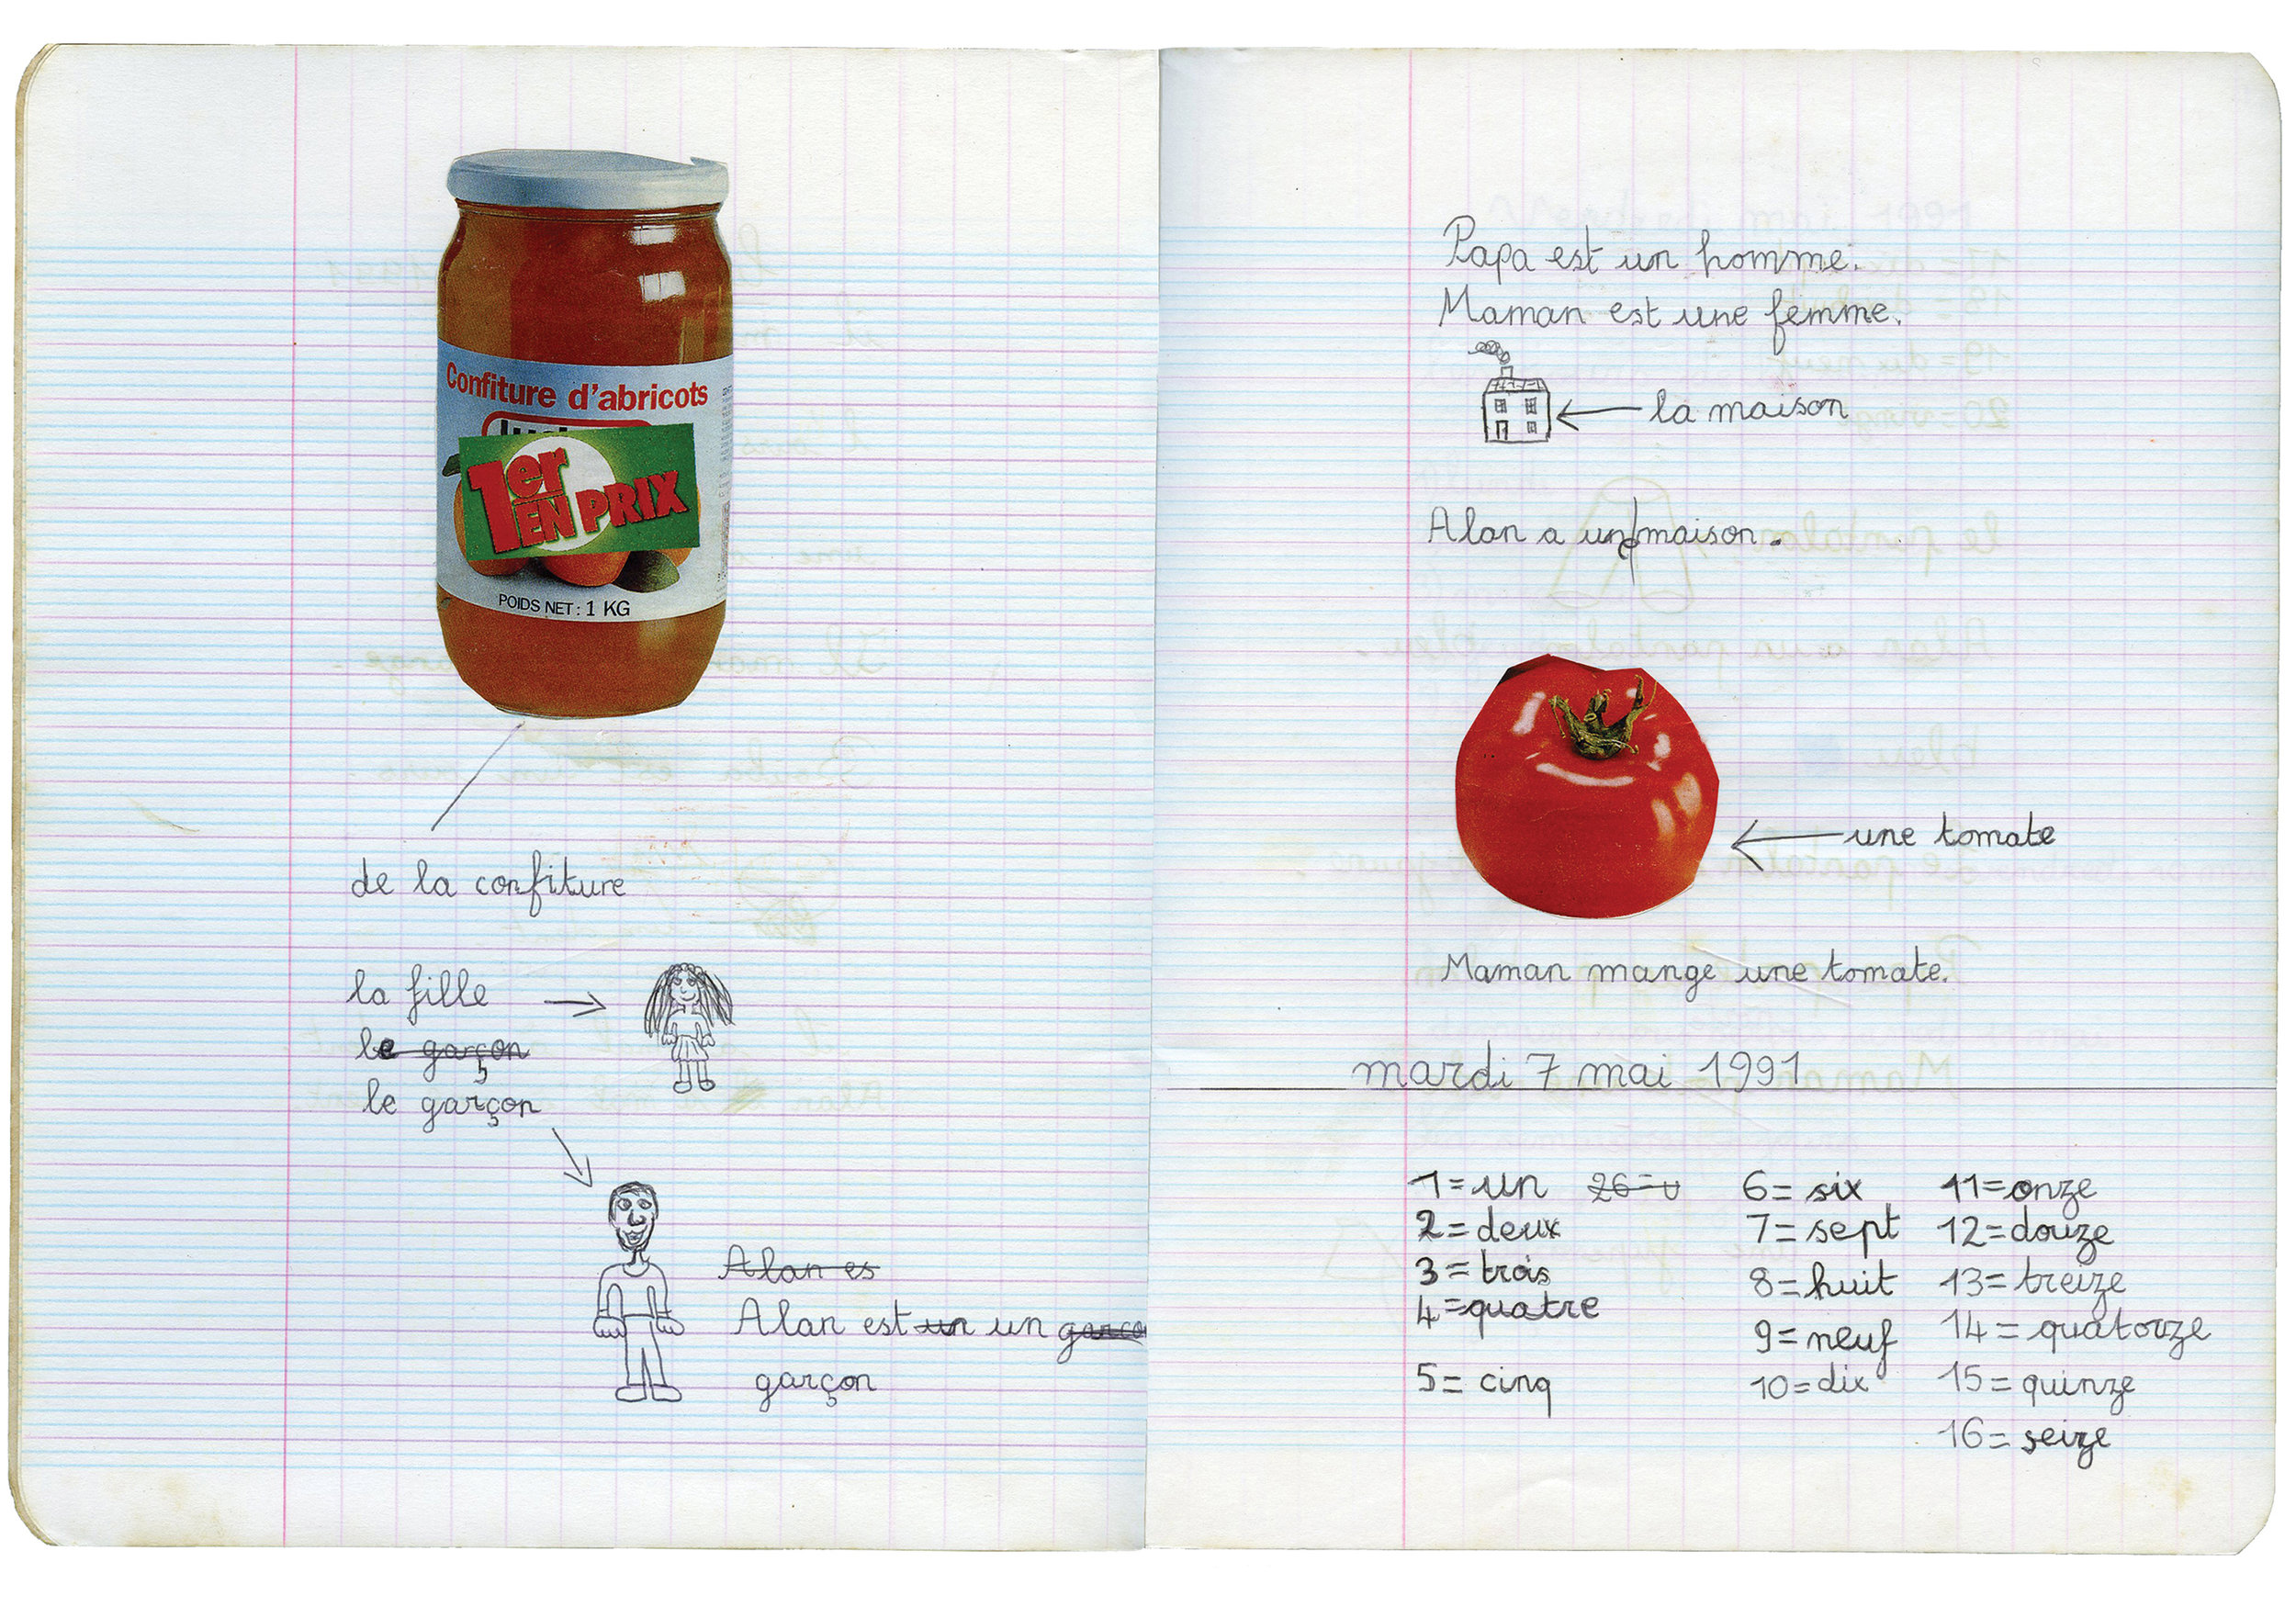 Confiture d'abricots
1er
EN PRIX
POIDS NET : 1 KG
de la confiture
la fille
le garçon
le garçon
Alan es
Alan est un un garco
garçon
Papa est un homme.
Maman est une femme.
la maison
Alan a une maison.
une tomate
Maman mange une tomate.
mardi 7 mai 1991
1=un 26=u 6=six 11=onze
2=deux 7=sept 12=douze
3=trois 8=huit 13=treize
4=quatre 9=neuf 14=quatorze
5=cinq 10=dix 15=quinze
16=seize